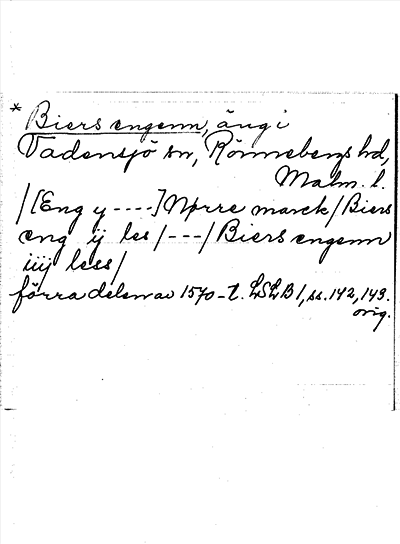 * Biers engenn, äng i
Vadensjö sn, Rönnebergs hd,
Malm. l.
/[Eng y ----] Nørre marck/Biers
eng ij les/---/Biers engenn
iiij less/
förra delen av 1570-t. LSLB 1, ss. 142, 143.
orig.